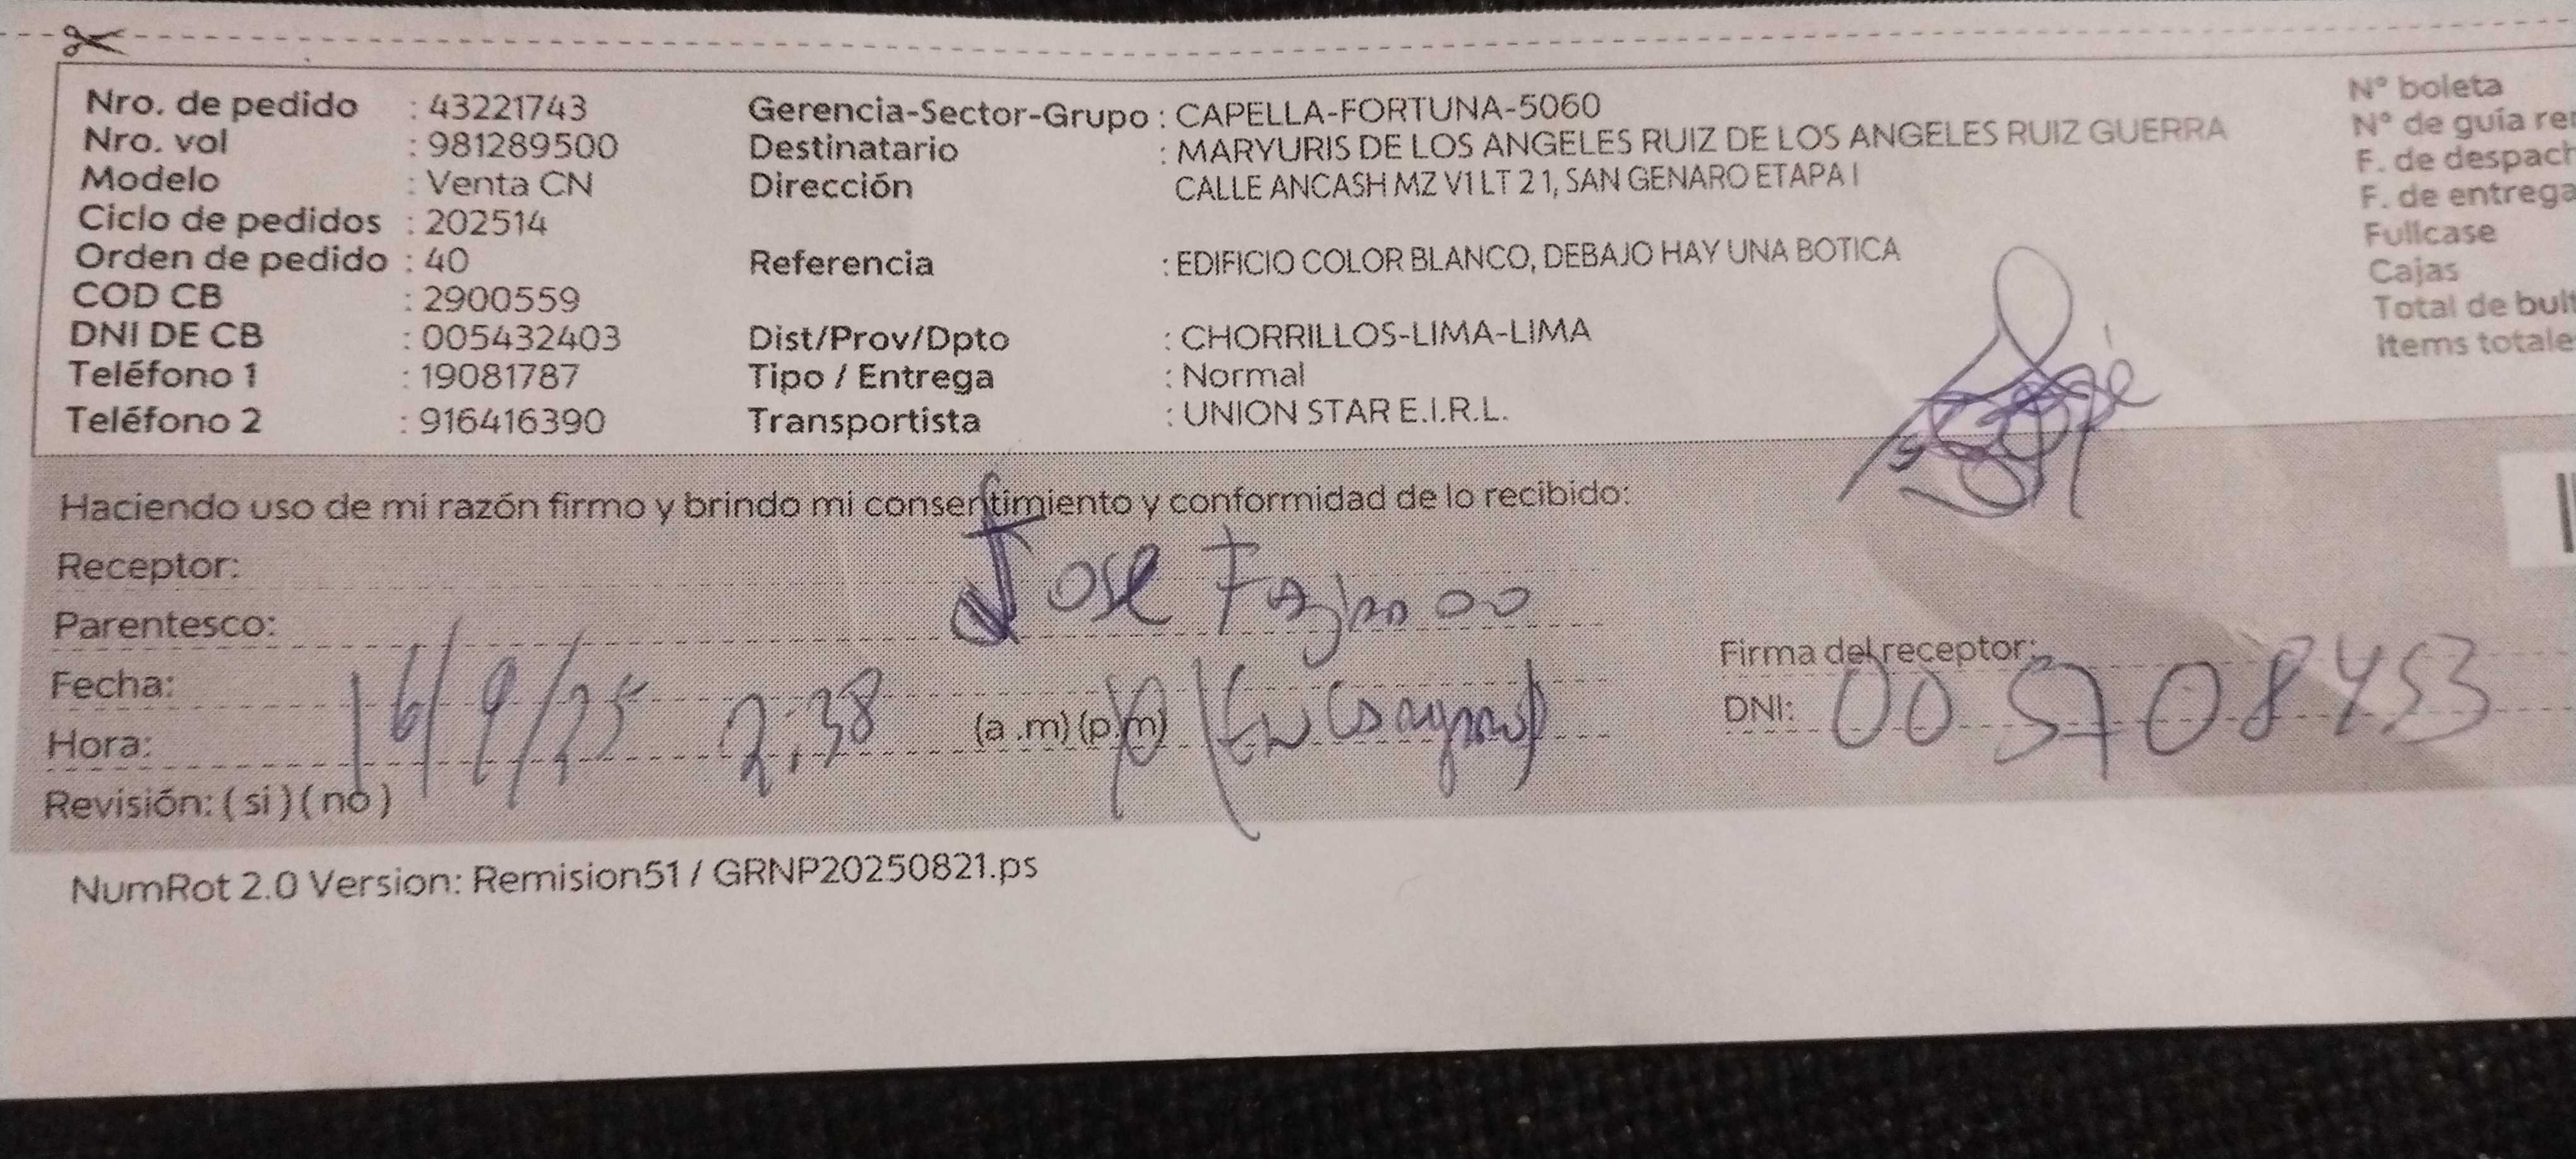 Nro. de pedido : 43221743
Nro. vol : 981289500
Modelo : Venta CN
Ciclo de pedidos : 202514
Orden de pedido : 40
COD CB : 2900559
DNI DE CB : 005432403
Teléfono 1 : 19081787
Teléfono 2 : 916416390
Gerencia-Sector-Grupo : CAPELLA-FORTUNA-5060
Destinatario : MARYURIS DE LOS ANGELES RUIZ DE LOS ANGELES RUIZ GUERRA
Dirección CALLE ANCASH MZ V1 LT 2 1, SAN GENARO ETAPA I
Referencia : EDIFICIO COLOR BLANCO, DEBAJO HAY UNA BOTICA
Dist/Prov/Dpto : CHORRILLOS-LIMA-LIMA
Tipo / Entrega : Normal
Transportista : UNION STAR E.I.R.L.
N° boleta
N° de guía
F. de
F. de entrega
Fullcase
Cajas
Total de
Items
Haciendo uso de mi razón firmo y brindo mi consentimiento y conformidad de lo recibido:
Receptor: Jose
Parentesco:
Fecha: 16/9/25
Hora: 2:38 (a.m) (p.m)
Revisión: ( si ) ( no )
Firma del receptor:
DNI: 005708453
NumRot 2.0 Version: Remision51 / GRNP20250821.ps